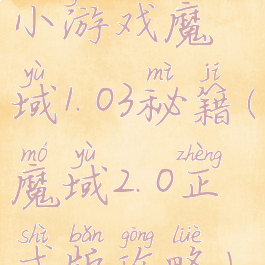 小游戏魔
yù mì jí
域1.03秘籍(
mó yù zhèng
魔域2.0正
shì bǎn gōng lüè
式版攻略)